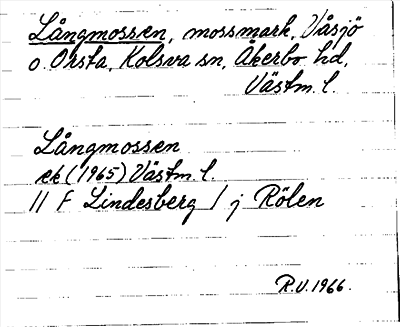 Långmossen, mossmark, Våsjö
o. Orsta, Kolsva sn, Åkerbo hd,
Västm. l.
Långmossen
ek (1965) Västm. l.
11 F Lindesberg / j Rölen
R.V. 1966.